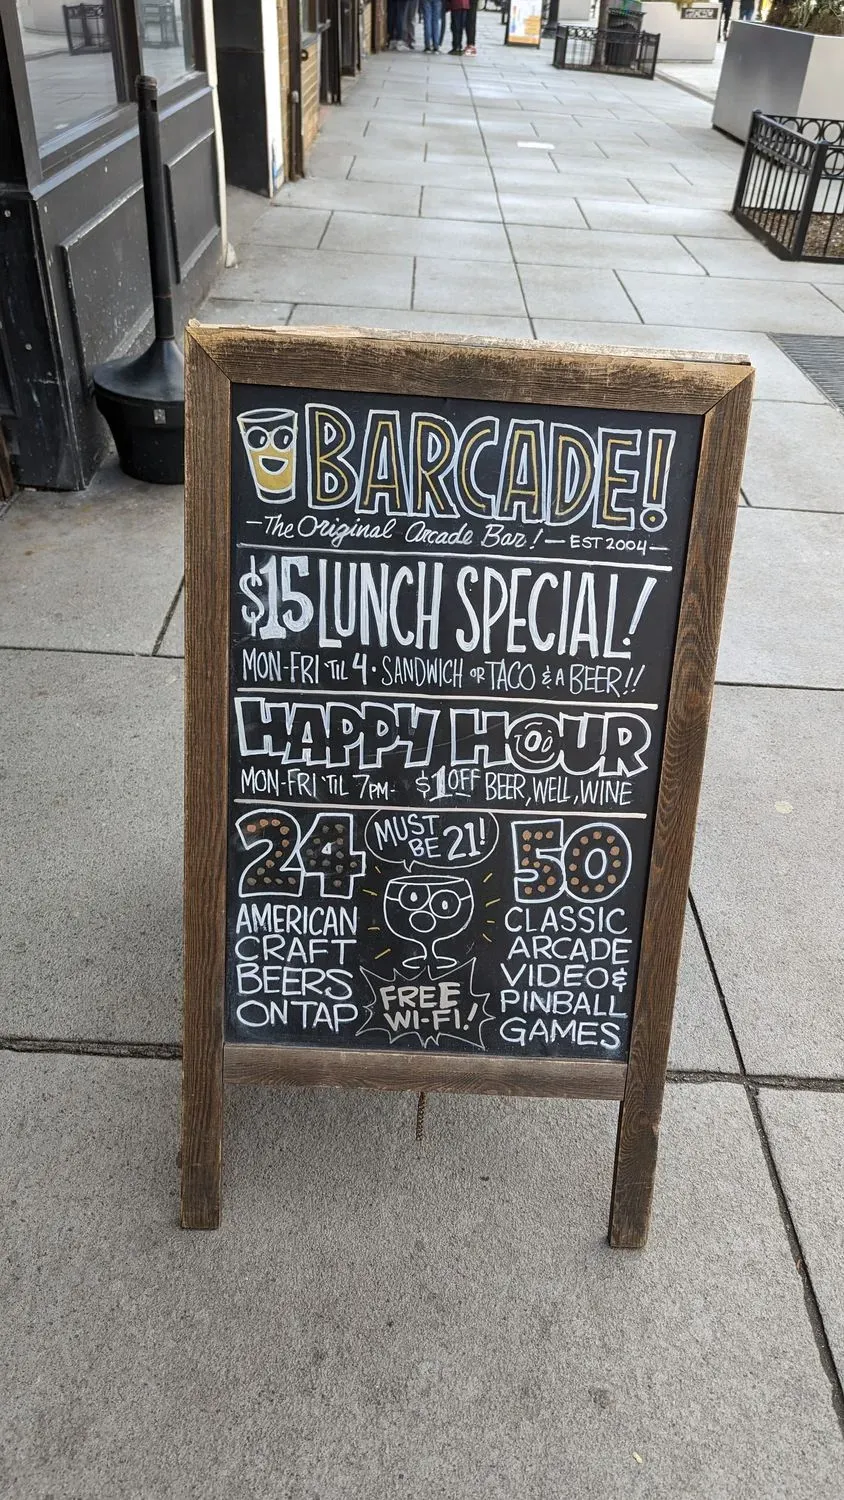 BARCADE!
-The Original Arcade Bar!- EST 2004-
$15 LUNCH SPECIAL!
MON-FRI 'TIL 4 · SANDWICH OR TACO & A BEER!!
HAPPY HOUR
MON-FRI 'TIL 7PM- $1 OFF BEER, WELL, WINE
24
AMERICAN
CRAFT
BEERS
ON TAP
MUST
BE 21!
FREE
WI-FI!
50
CLASSIC
ARCADE
VIDEO &
PINBALL
GAMES